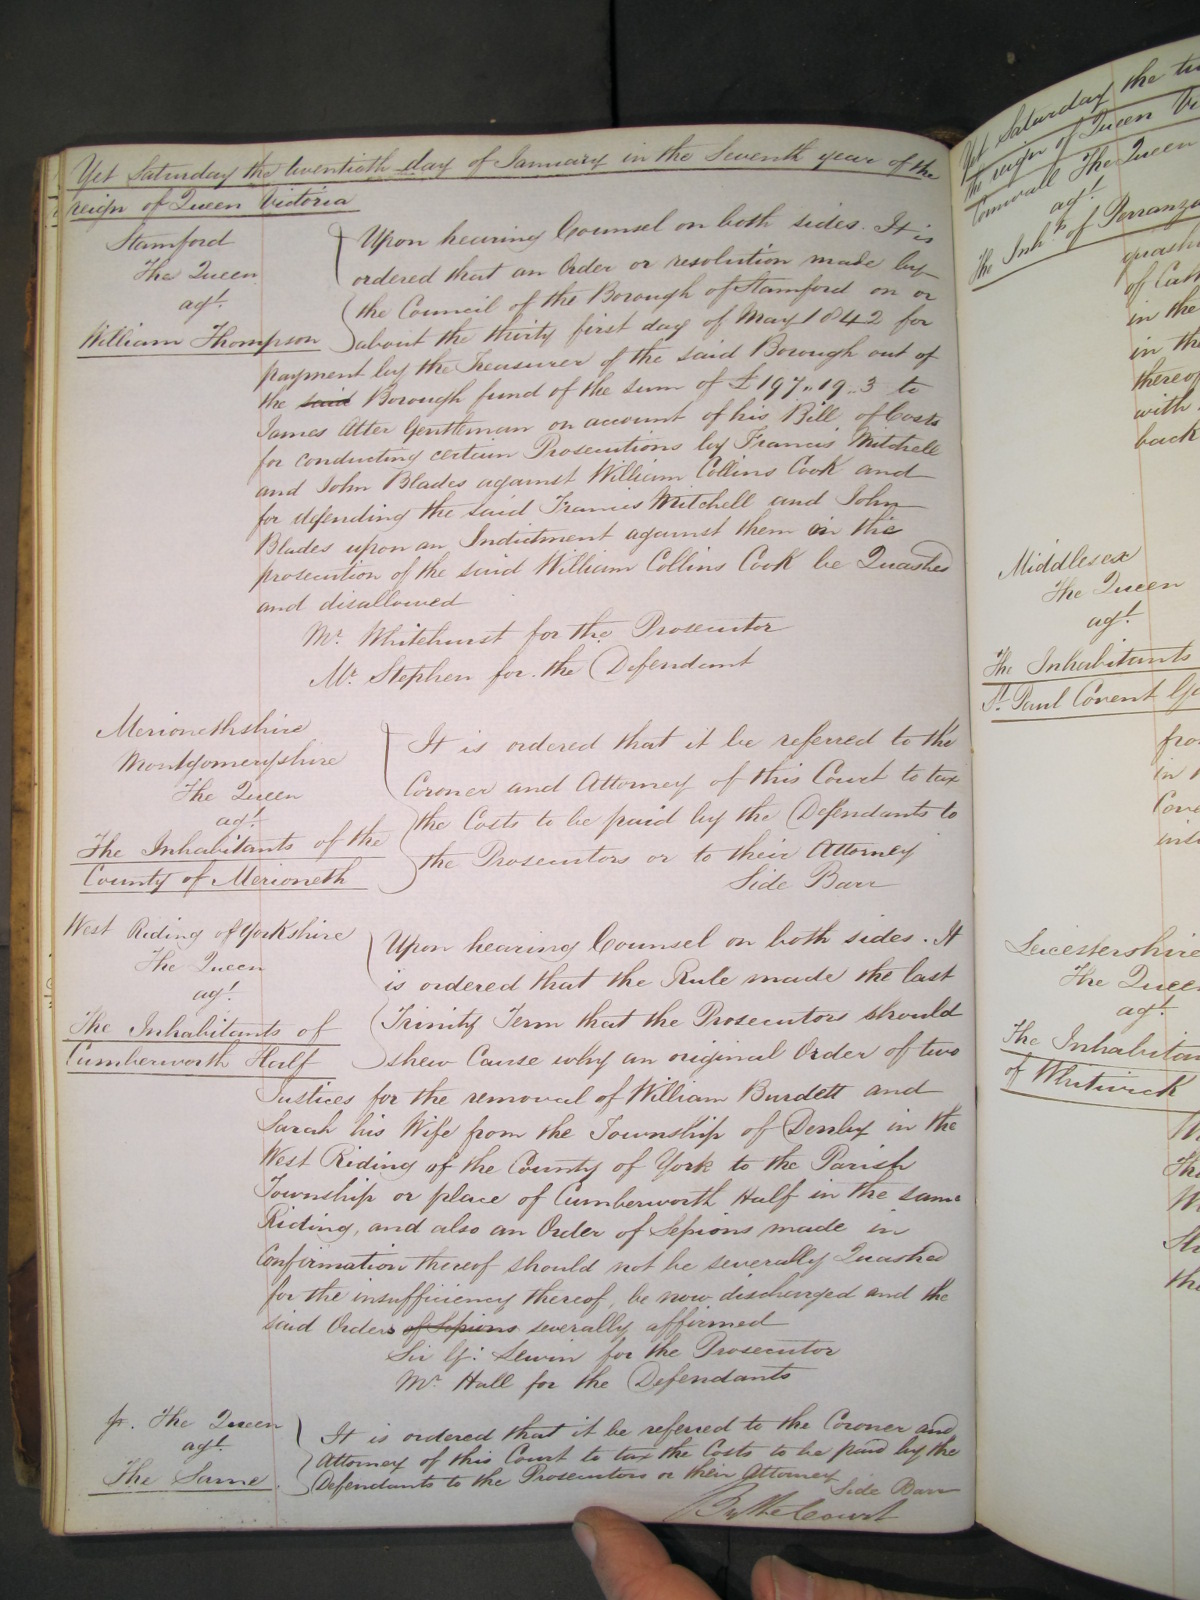 Yet Saturday the twentieth day of January in the Seventh year of the
reign of Queen Victoria
Stamford
The Queen
agt.
William Thompson
Upon hearing Counsel on both sides. It is
ordered that an Order or resolution made by
the Council of the Borough of Stamford on or
about the thirty first day of May 1842 for
payment by the Treasurer of the said Borough out of
the said Borough fund of the sum of £197..19..3 to
James Atter Gentleman on account of his Bill of Costs
for conducting certain Prosecutions by Francis Mitchell
and John Blades against William Collins Cook and
for defending the said Francis Mitchell and John
Blades upon an Indictment against them in the
prosecution of the said William Collins Cook be Quashed
and disallowed
Mr. Whitehurst for the Prosecutor
Mr. Stephen for the Defendant
Merionethshire
Montgomeryshire
The Queen
agt.
The Inhabitants of the
County of Merioneth
It is ordered that it be referred to the
Coroner and Attorney of this Court to tax
the Costs to be paid by the Defendants to
the Prosecutors or to their Attorney
Side Barr
West Riding of Yorkshire
The Queen
agt.
The Inhabitants of
Cumberworth Half
Upon hearing Counsel on both sides. It
is ordered that the Rule made the last
Trinity Term that the Prosecutors should
shew Cause why an original Order of two
Justices for the removal of William Burdett and
Sarah his Wife from the Township of Denby in the
West Riding of the County of York to the Parish
Township or place of Cumberworth Half in the same
Riding, and also an Order of Sessions made in
Confirmation thereof should not be severally Quashed
for the insufficiency thereof, be now discharged and the
said Orders of Sessions severally affirmed
Sir G. Lewin for the Prosecutor
Mr. Hall for the Defendants
The Queen
agt.
The Same
It is ordered that it be referred to the Coroner and
Attorney of this Court to tax the Costs to be paid by the
Defendants to the Prosecutors or their Attorney
Side Barr
By the Court
Yet Saturday the
the reign of Queen
Cornwall The Queen
agt.
The Inhts of
in the
in the
thereof
with
back
Middlesex
The Queen
agt.
The Inhabitants
St. Paul Covent
Leicestershire
The Queen
agt.
The Inhabitan
of Whitwick